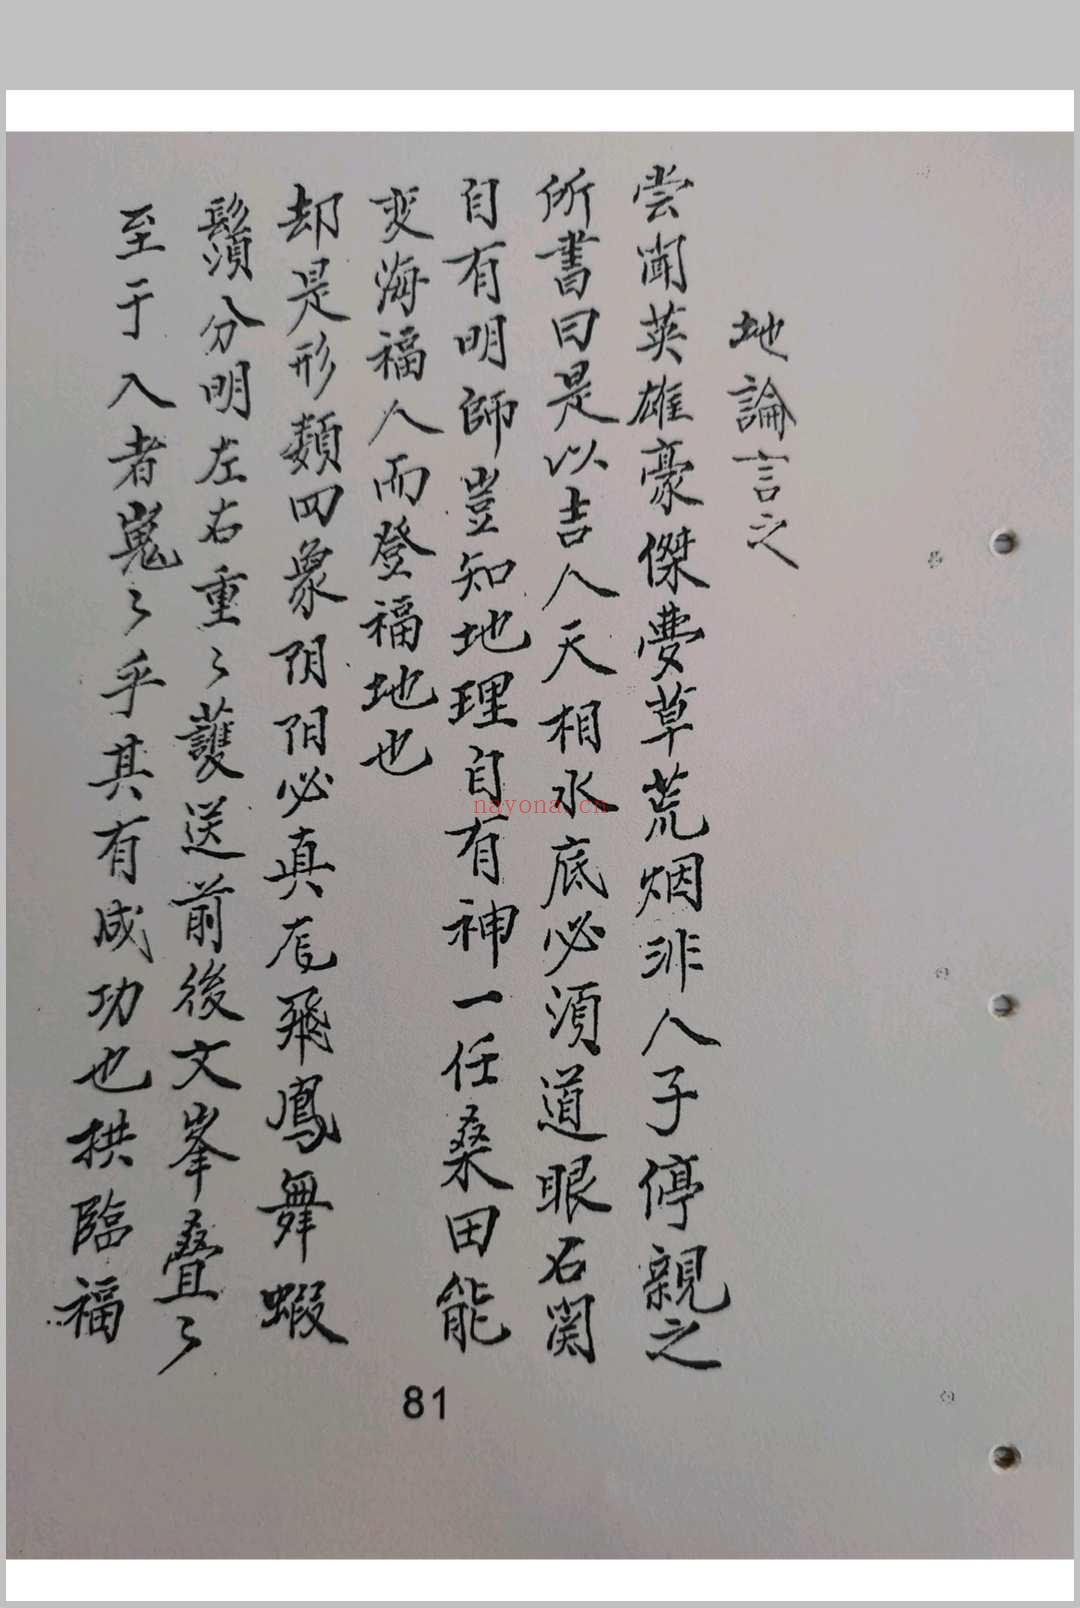 地論言之
尝闻英雄豪傑夢草荒烟非人子停親之
所書曰是以吉人天相水底必須道眼石関
自有明師豈知地理自有神一任桑田能
变海福人而登福地也
却是形類四象阴阳必真龙飛鳳舞蝦
鬚分明左右重〻護送前後文峯叠〻
至于入者嵬〻乎其有成功也拱臨福
81
nayona.cn